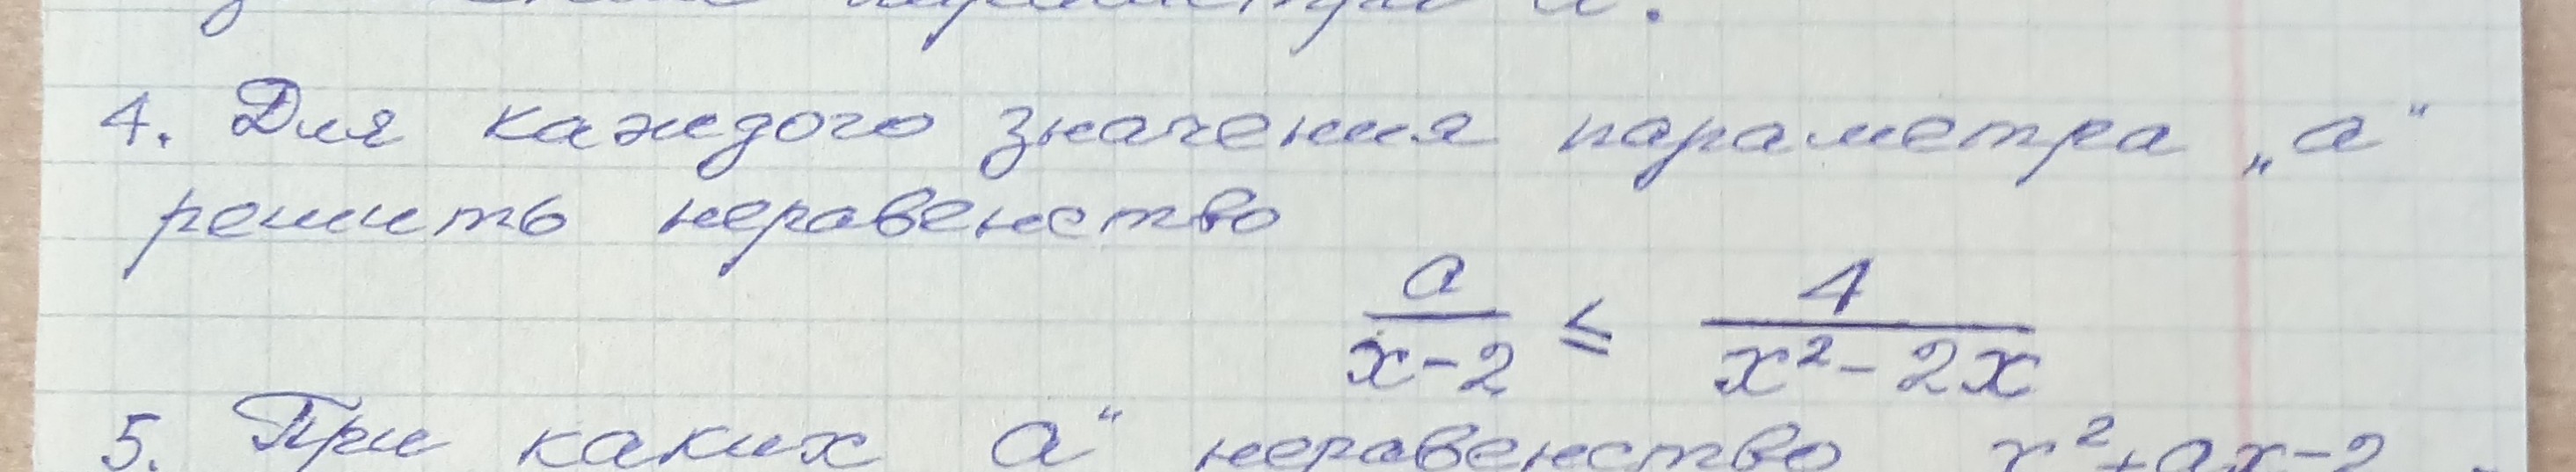 параметра а.
4. Для каждого значения параметра „а"
решить неравенство
a/(x-2) ≤ 4/(x²-2x)
5. При каких а" неравенство x²+ax-2